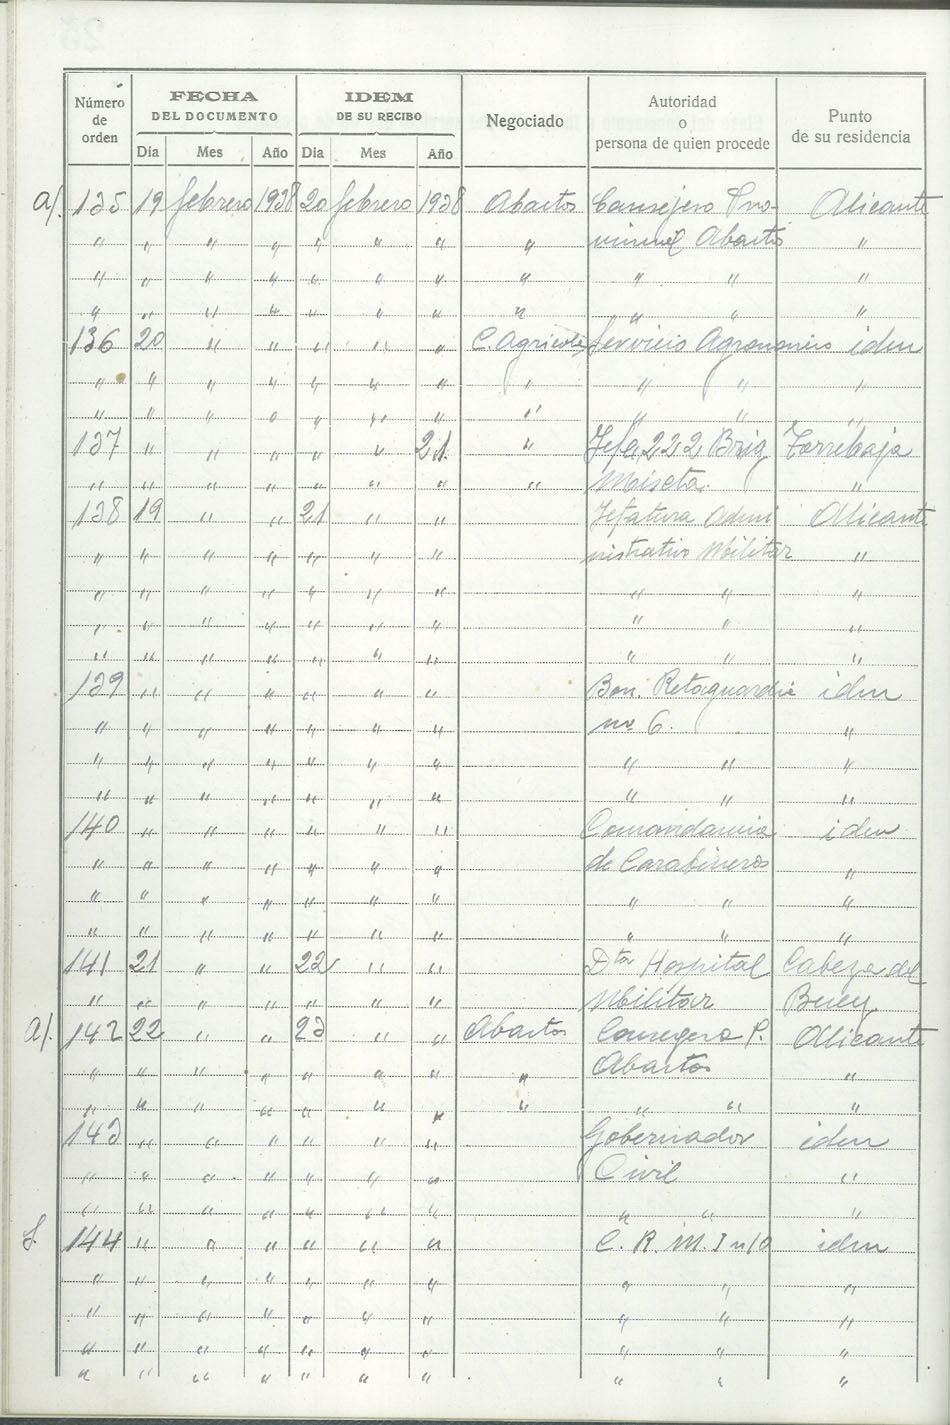 Número de orden | FECHA DEL DOCUMENTO | IDEM DE SU RECIBO | Negociado | Autoridad o persona de quien procede | Punto de su residencia
Día | Mes | Año | Día | Mes | Año
a/. 135 | 19 | febrero | 1938 | 20 | febrero | 1938 | Abastos | Consejero Pro- | Alicante
" | " | " | " | " | " | " | " | vincial Abastos | "
" | " | " | " | " | " | " | " | " " | "
" | " | " | " | " | " | " | " | " " | "
136 | 20 | " | " | " | " | " | C. Agricola | Servicio Agronomico | idem
" | " | " | " | " | " | " | " | " " | "
" | " | " | " | " | " | " | " | " " | "
137 | " | " | " | " | " | 21 | " | Jefe 222 Brig | Torrebaja
" | " | " | " | " | " | " | " | Miscta. | "
138 | 19 | " | " | 21 | " | " | Jefatura Admi | Alicante
" | " | " | " | " | " | " | nistrativo Militar | "
" | " | " | " | " | " | " | " " | "
" | " | " | " | " | " | " | " " | "
" | " | " | " | " | " | " | " " | "
139 | " | " | " | " | " | " | Bon. Retaguardia | idem
" | " | " | " | " | " | " | nº 6. | "
" | " | " | " | " | " | " | " " | "
" | " | " | " | " | " | " | " " | "
140 | " | " | " | " | " | " | Comandancia | idem
" | " | " | " | " | " | " | de Carabineros | "
" | " | " | " | " | " | " | " " | "
" | " | " | " | " | " | " | " " | "
141 | 21 | " | " | 22 | " | " | Dta Hospital | Cabeza del
" | " | " | " | " | " | " | Militar | Buey
a/. 142 | 22 | " | " | 23 | " | " | Abastos | Consegero P. | Alicante
" | " | " | " | " | " | " | " | Abastos | "
" | " | " | " | " | " | " | " | " " | "
143 | " | " | " | " | " | " | Gobernador | idem
" | " | " | " | " | " | " | Civil | "
" | " | " | " | " | " | " | " " | "
144 | " | " | " | " | " | " | C. R. M. I n | idem
" | " | " | " | " | " | " | " " | "
" | " | " | " | " | " | " | " " | "
" | " | " | " | " | " | " | " " | "
" | " | " | " | " | " | " | " " | "